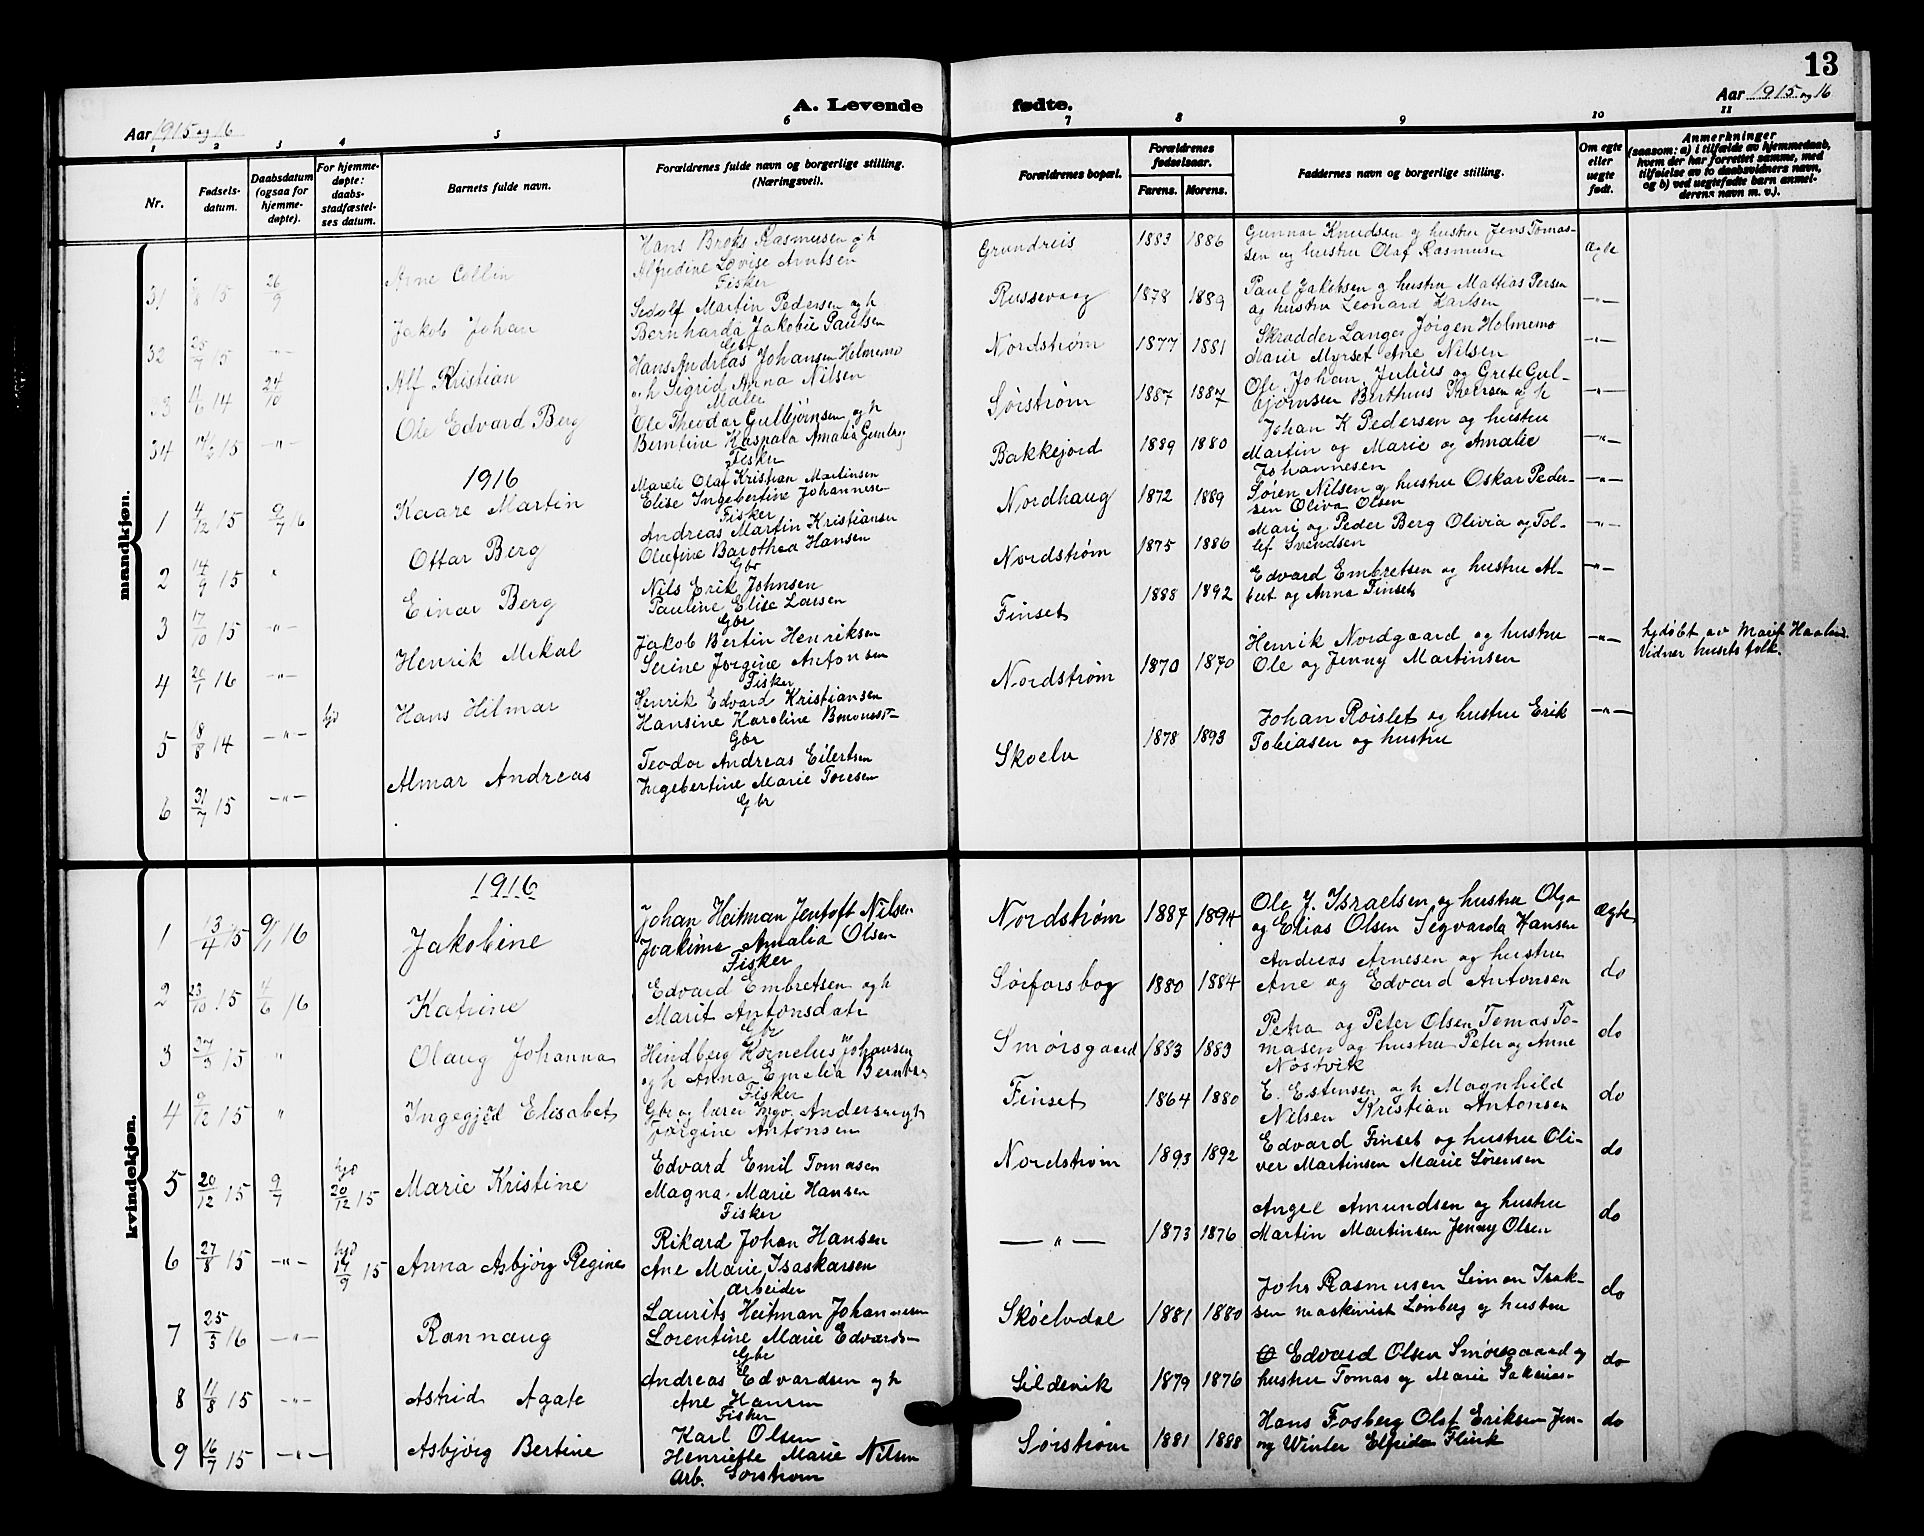 13
A. Levende fødte.
Aar 1915 og 16
Aar 1915 og 16
1 2 3 4 5 6 7 8 9 10 11
Nr.
Fødsels-
datum.
Daabsdatum
(ogsaa for
hjemme-
døpte).
For hjemme-
døpte:
daabs-
stadfæstel-
ses datum.
Barnets fulde navn.
Forældrenes fulde navn og borgerlige stilling.
(Næringsvei).
Forældrenes bopæl.
Forældrenes
fødselsaar.
Farens. Morens.
Faddernes navn og borgerlige stilling.
Om egte
eller
uegte
født.
Anmerkninger
(saasom: a) i tilfælde av hjemmedaab,
hvem der har forrettet samme, med
tilføielse av to daabsvidners navn,
og b) ved uegtefødte barn anmel-
derens navn m. v.).
mandkjøn.
31 8 15 26/9 Arne Collin
Hans Broks Rasmusen og h
Alfredine Lovise Arntsen
Fisker
Grundreis 1883 1886
Gunnar Knudsen og hustru Jens Tomas-
sen og hustru Olaf Rasmusen
Ægte
32 25/7 15 -"- Jakob Johan
Sedolf Martin Pedersen og h
Bernharda Jakobie Paulsen
Gbr
Russevaag 1878 1889
Paul Jakobsen og hustru Mathias Persen
og hustru Leonard Karlsen
-"-
33 14 24/10 Alf Kristian
Hans Andreas Johansen Holmemo
og h Sigrid Anna Nilsen
Maler
Nordstrøm 1877 1881
Skrædder Lange Jørgen Holmemo
Marie Myrset Ane Nilsen
-"-
34 15 -"- Ole Edvard Berg
Ole Theodor Gulbjørnsen og h
Berntine Kaspara Amalia
Fisker
Sørstrøm 1887 1887
Ole Johan, Julius og Grete Gul-
bjørnsen Berthus Iversen og h
-"-
1916
1 4/12 15 9/7 16 Kaare Martin
Marele Olaf Kristian Martinsen
Elise Ingebertine Johannese
Fisker
Bakkejord 1889 1880
Johan K Pedersen og hustru
Martin og Marie og Amalie
Johannesen
-"-
2 14/9 15 " Ottar Berg
Andreas Martin Kristiansen
Olufine Barothea Hansen
Gbr
Nordhaug 1872 1889
Søren Nilsen og hustru Oskar Peder-
sen Oliva Olsen
-"-
3 17/10 15 -"- Einar Berg
Nils Erik Johnsen
Pauline Elise Larsen
Gbr
Nordstrøm 1875 1886
Mari og Peder Berg Olivia og Tol-
lef Svendsen
-"-
4 20/1 16 -"- Henrik Mikal
Jakob Bertin Henriksen
Serine Jørgine Antonsen
Fisker
Finset 1888 1892
Edvard Embretsen og hustru Al-
bert og Anna Finset
-"-
5 8/8 14 -"- hjd Hans Hilmar
Henrik Edvard Kristiansen
Hansine Karoline
Gbr
Nordstrøm 1870 1870
Henrik Nordgaard og hustru
Ole og Jenny Martinsen
-"-
hjdøbt av Marit Haaland.
Vidner husets folk.
6 31/7 15 -"- Almar Andreas
Teodor Andreas Eilertsen
Ingebertine Marie Toresen
Gbr
Skoelv 1878 1893
Johan Roislet og hustru Erik
Tobiasen og hustru
-"-
kvindekjøn.
1916
1 13/4 15 9/1 16 Jakobine
Johan Heitman Jentoft Nilsen
Joakime Amalia Olsen
Fisker
Nordstrøm 1887 1894
Ole J. Israelsen og hustru Olga
og Elias Olsen Segvarda Hansen
Ægte
2 23/10 15 4/6 16 Katrine
Edvard Embretsen og h
Marit Antonsdatr
Gbr
Sørforsbog 1880 1884
Andreas Arnesen og hustru
Ane og Edvard Antonsen
do
3 27/3 15 " Olaug Johanna
Hindberg Kornelius Johansen
og h Anna Emelia
Fisker
Smørsgaard 1883 1883
Petra og Peter Olsen Tomas To-
masen og hustru Peter og Anne
Nøstvik
do
4 9/12 15 " Ingegjød Elisabet
Gbr og lærer Ingv. Andersen og h
Jørgine Antonsen
Finset 1864 1880
E. Estensen og h Magnhild
Nilsen Kristian Antonsen
do
5 20/12 15 9/7 hjd 20/12 15 Marie Kristine
Edvard Emil Tomasen
Magna Marie Hansen
Fisker
Nordstrøm 1893 1892
Edvard Finset og hustru Oli-
ver Martinsen Marie Sørensen
do
6 27/8 15 -"- hjd 14/9 15 Anna Asbjørg Regine
Rikard Johan Hansen
Ane Marie Isaskarsen
Arbeider
-"- 1873 1876
Angel Amundsen og hustru
Martin Martinsen Jenny Olsen
do
7 25/3 16 -"- Rannaug
Laurits Heitman Johannesen
Lorentine Marie Edvards-
Gbr
Skøelvdal 1881 1880
Johs Rasmusen Simon Isak-
sen maskinist Lønberg og hustru
do
8 11/8 15 -"- Astrid Agate
Andreas Edvardsen og h
Ane Hansen
Fisker
Sildevik 1879 1876
Edvard Olsen Smørsgaard og
hustru Tomas og Marie Sakrias-
do
9 16/7 15 -"- Asbjørg Bertine
Karl Olsen
Henriette Marie Nilsen
Arb. Sørstrøm
Sørstrøm 1881 1888
Hans Fosberg Olaf Eriksen Jen-
ny Winter Elfrida Flink
do